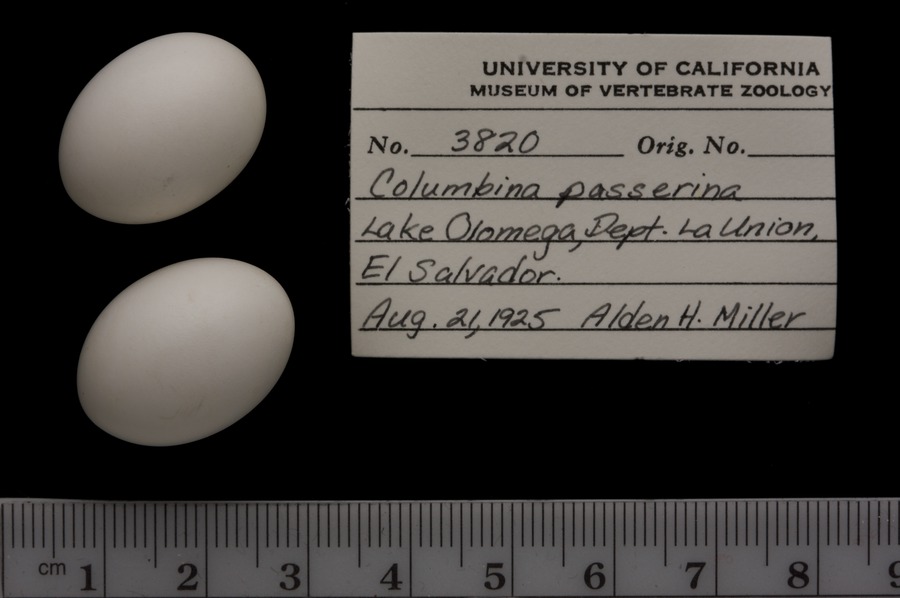 UNIVERSITY OF CALIFORNIA
MUSEUM OF VERTEBRATE ZOOLOGY
No. 3820 Orig. No.
Columbina passerina
Lake Olomega, Dept. La Union,
El Salvador.
Aug. 21, 1925 Alden H. Miller
cm 1 2 3 4 5 6 7 8 9